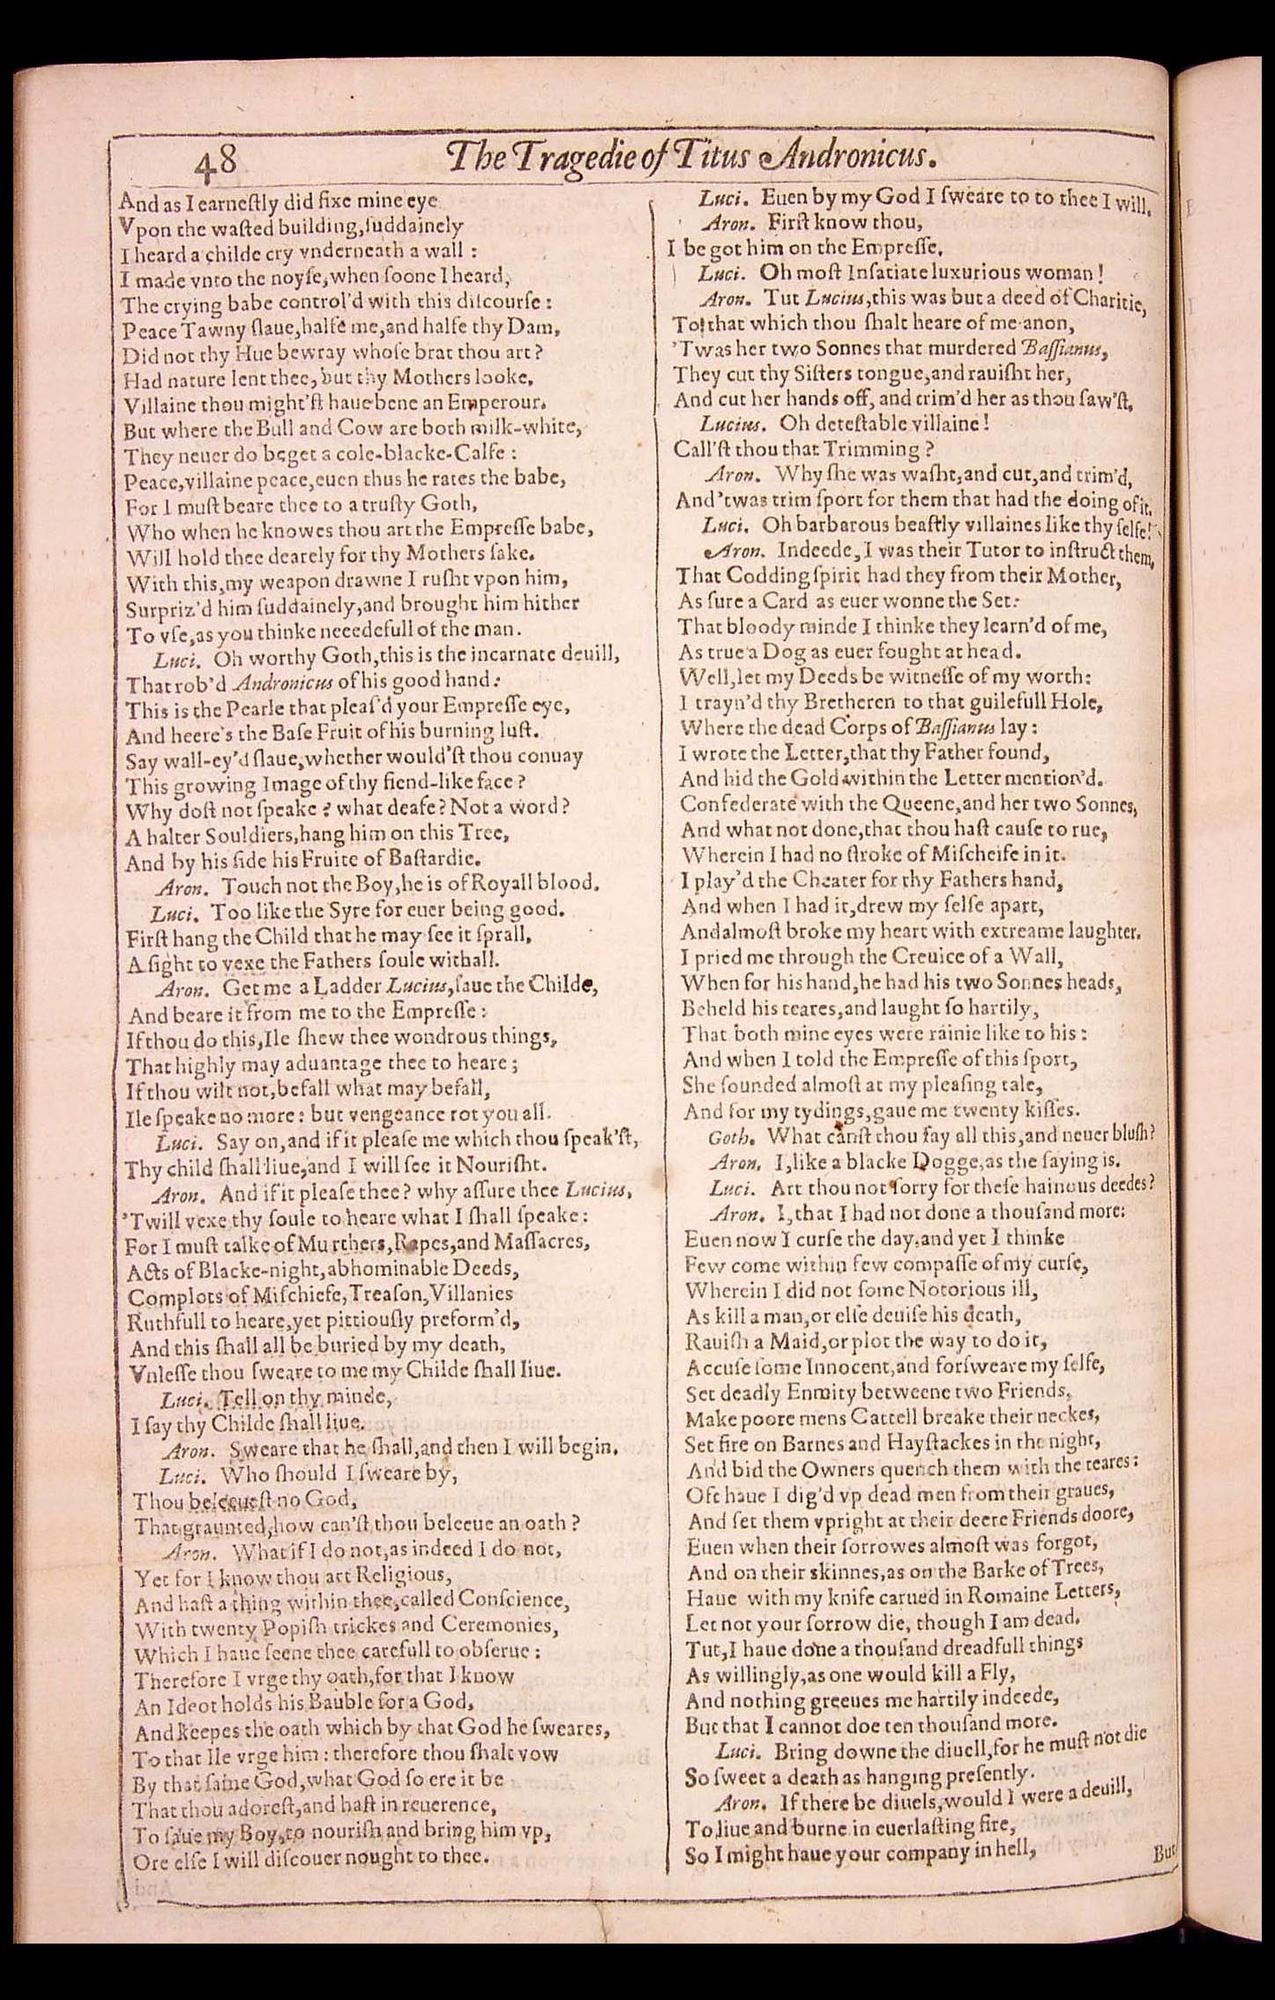 48
The Tragedie of Titus Andronicus.
And as I earneſtly did fixe mine eye
Vpon the waſted building, ſuddainely
I heard a childe cry vnderneath a wall :
I made vnto the noyſe, when ſoone I heard,
The crying babe control'd with this diſcourſe :
Peace Tawny ſlaue, halfe me, and halfe thy Dam,
Did not thy Hue bewray whoſe brat thou art ?
Had nature lent thee, but thy Mothers looke,
Villaine thou might'ſt haue bene an Emperour.
But where the Bull and Cow are both milk-white,
They neuer do beget a cole-blacke-Calfe :
Peace, villaine peace, euen thus he rates the babe,
For I muſt beare thee to a truſty Goth,
Who when he knowes thou art the Empreſſe babe,
Will hold thee dearely for thy Mothers ſake.
With this, my weapon drawne I ruſht vpon him,
Surpriz'd him ſuddainely, and brought him hither
To vſe, as you thinke neeedefull of the man.
Luci. Oh worthy Goth, this is the incarnate deuill,
That rob'd Andronicus of his good hand :
This is the Pearle that pleaſ'd your Empreſſe eye,
And heere's the Baſe Fruit of his burning luſt.
Say wall-ey'd ſlaue, whether would'ſt thou conuay
This growing Image of thy fiend-like face ?
Why doſt not ſpeake ? what deafe ? Not a word ?
A halter Souldiers, hang him on this Tree,
And by his ſide his Fruite of Baſtardie.
Aron. Touch not the Boy, he is of Royall blood.
Luci. Too like the Syre for euer being good.
Firſt hang the Child that he may ſee it ſprall,
A ſight to vexe the Fathers ſoule withall.
Aron. Get me a Ladder Lucius, ſaue the Childe,
And beare it from me to the Empreſſe :
If thou do this, Ile ſhew thee wondrous things,
That highly may aduantage thee to heare ;
If thou wilt not, befall what may befall,
Ile ſpeake no more : but vengeance rot you all.
Luci. Say on, and if it pleaſe me which thou ſpeak'ſt,
Thy child ſhall liue, and I will ſee it Nouriſht.
Aron. And if it pleaſe thee ? why aſſure thee Lucius,
'Twill vexe thy ſoule to heare what I ſhall ſpeake :
For I muſt talke of Murthers, Rapes, and Maſſacres,
Acts of Blacke-night, abhominable Deeds,
Complots of Miſchiefe, Treaſon, Villanies
Ruthfull to heare, yet pittiouſly preform'd,
And this ſhall all be buried by my death,
Vnleſſe thou ſweare to me my Childe ſhall liue.
Luci. Tell on thy minde,
I ſay thy Childe ſhall liue.
Aron. Sweare that he ſhall, and then I will begin.
Luci. Who ſhould I ſweare by,
Thou beleeueſt no God,
That graunted, how can'ſt thou beleeue an oath ?
Aron. What if I do not, as indeed I do not,
Yet for I know thou art Religious,
And haſt a thing within thee, called Conſcience,
With twenty Popiſh trickes and Ceremonies,
Which I haue ſeene thee carefull to obſerue :
Therefore I vrge thy oath, for that I know
An Ideot holds his Bauble for a God,
And keepes the oath which by that God he ſweares,
To that Ile vrge him : therefore thou ſhalt vow
By that ſame God, what God ſo ere it be
That thou adoreſt, and haſt in reuerence,
To ſaue my Boy, to nouriſh and bring him vp,
Ore elſe I will diſcouer nought to thee.
Luci. Euen by my God I ſweare to to thee I will.
Aron. Firſt know thou,
I begot him on the Empreſſe.
Luci. Oh moſt Inſatiate luxurious woman !
Aron. Tut Lucius, this was but a deed of Charitie,
To that which thou ſhalt heare of me anon,
'Twas her two Sonnes that murdered Baſſianus,
They cut thy Siſters tongue, and rauiſht her,
And cut her hands off, and trim'd her as thou ſaw'ſt.
Lucius. Oh deteſtable villaine !
Call'ſt thou that Trimming ?
Aron. Why ſhe was waſht, and cut, and trim'd,
And 'twas trim ſport for them that had the doing of it.
Luci. Oh barbarous beaſtly villaines like thy ſelfe !
Aron. Indeede, I was their Tutor to inſtruct them,
That Codding ſpirit had they from their Mother,
As ſure a Card as euer wonne the Set :
That bloody minde I thinke they learn'd of me,
As true a Dog as euer fought at head.
Well, let my Deeds be witneſſe of my worth :
I trayn'd thy Bretheren to that guilefull Hole,
Where the dead Corps of Baſſianus lay :
I wrote the Letter, that thy Father found,
And hid the Gold within the Letter mention'd.
Confederate with the Queene, and her two Sonnes,
And what not done, that thou haſt cauſe to rue,
Wherein I had no ſtroke of Miſcheife in it.
I play'd the Cheater for thy Fathers hand,
And when I had it, drew my ſelfe apart,
And almoſt broke my heart with extreame laughter.
I pried me through the Creuice of a Wall,
When for his hand, he had his two Sonnes heads,
Beheld his teares, and laught ſo hartily,
That both mine eyes were rainie like to his :
And when I told the Empreſſe of this ſport,
She ſounded almoſt at my pleaſing tale,
And for my tydings, gaue me twenty kiſſes.
Goth. What canſt thou ſay all this, and neuer bluſh ?
Aron. I, like a blacke Dogge, as the ſaying is.
Luci. Art thou not ſorry for theſe hainous deedes ?
Aron. I, that I had not done a thouſand more :
Euen now I curſe the day, and yet I thinke
Few come within few compaſſe of my curſe,
Wherein I did not ſome Notorious ill,
As kill a man, or elſe deuiſe his death,
Rauiſh a Maid, or plot the way to do it,
Accuſe ſome Innocent, and forſweare my ſelfe,
Set deadly Enmity betweene two Friends,
Make poore mens Cattell breake their neckes,
Set fire on Barnes and Hayſtackes in the night,
And bid the Owners quench them with the teares :
Oft haue I dig'd vp dead men from their graues,
And ſet them vpright at their deere Friends doore,
Euen when their ſorrowes almoſt was forgot,
And on their skinnes, as on the Barke of Trees,
Haue with my knife carued in Romaine Letters,
Let not your ſorrow die, though I am dead.
Tut, I haue done a thouſand dreadfull things
As willingly, as one would kill a Fly,
And nothing greeues me hartily indeede,
But that I cannot doe ten thouſand more.
Luci. Bring downe the diuell, for he muſt not die
So ſweet a death as hanging preſently.
Aron. If there be diuels, would I were a deuill,
To liue and burne in euerlaſting fire,
So I might haue your company in hell,
But